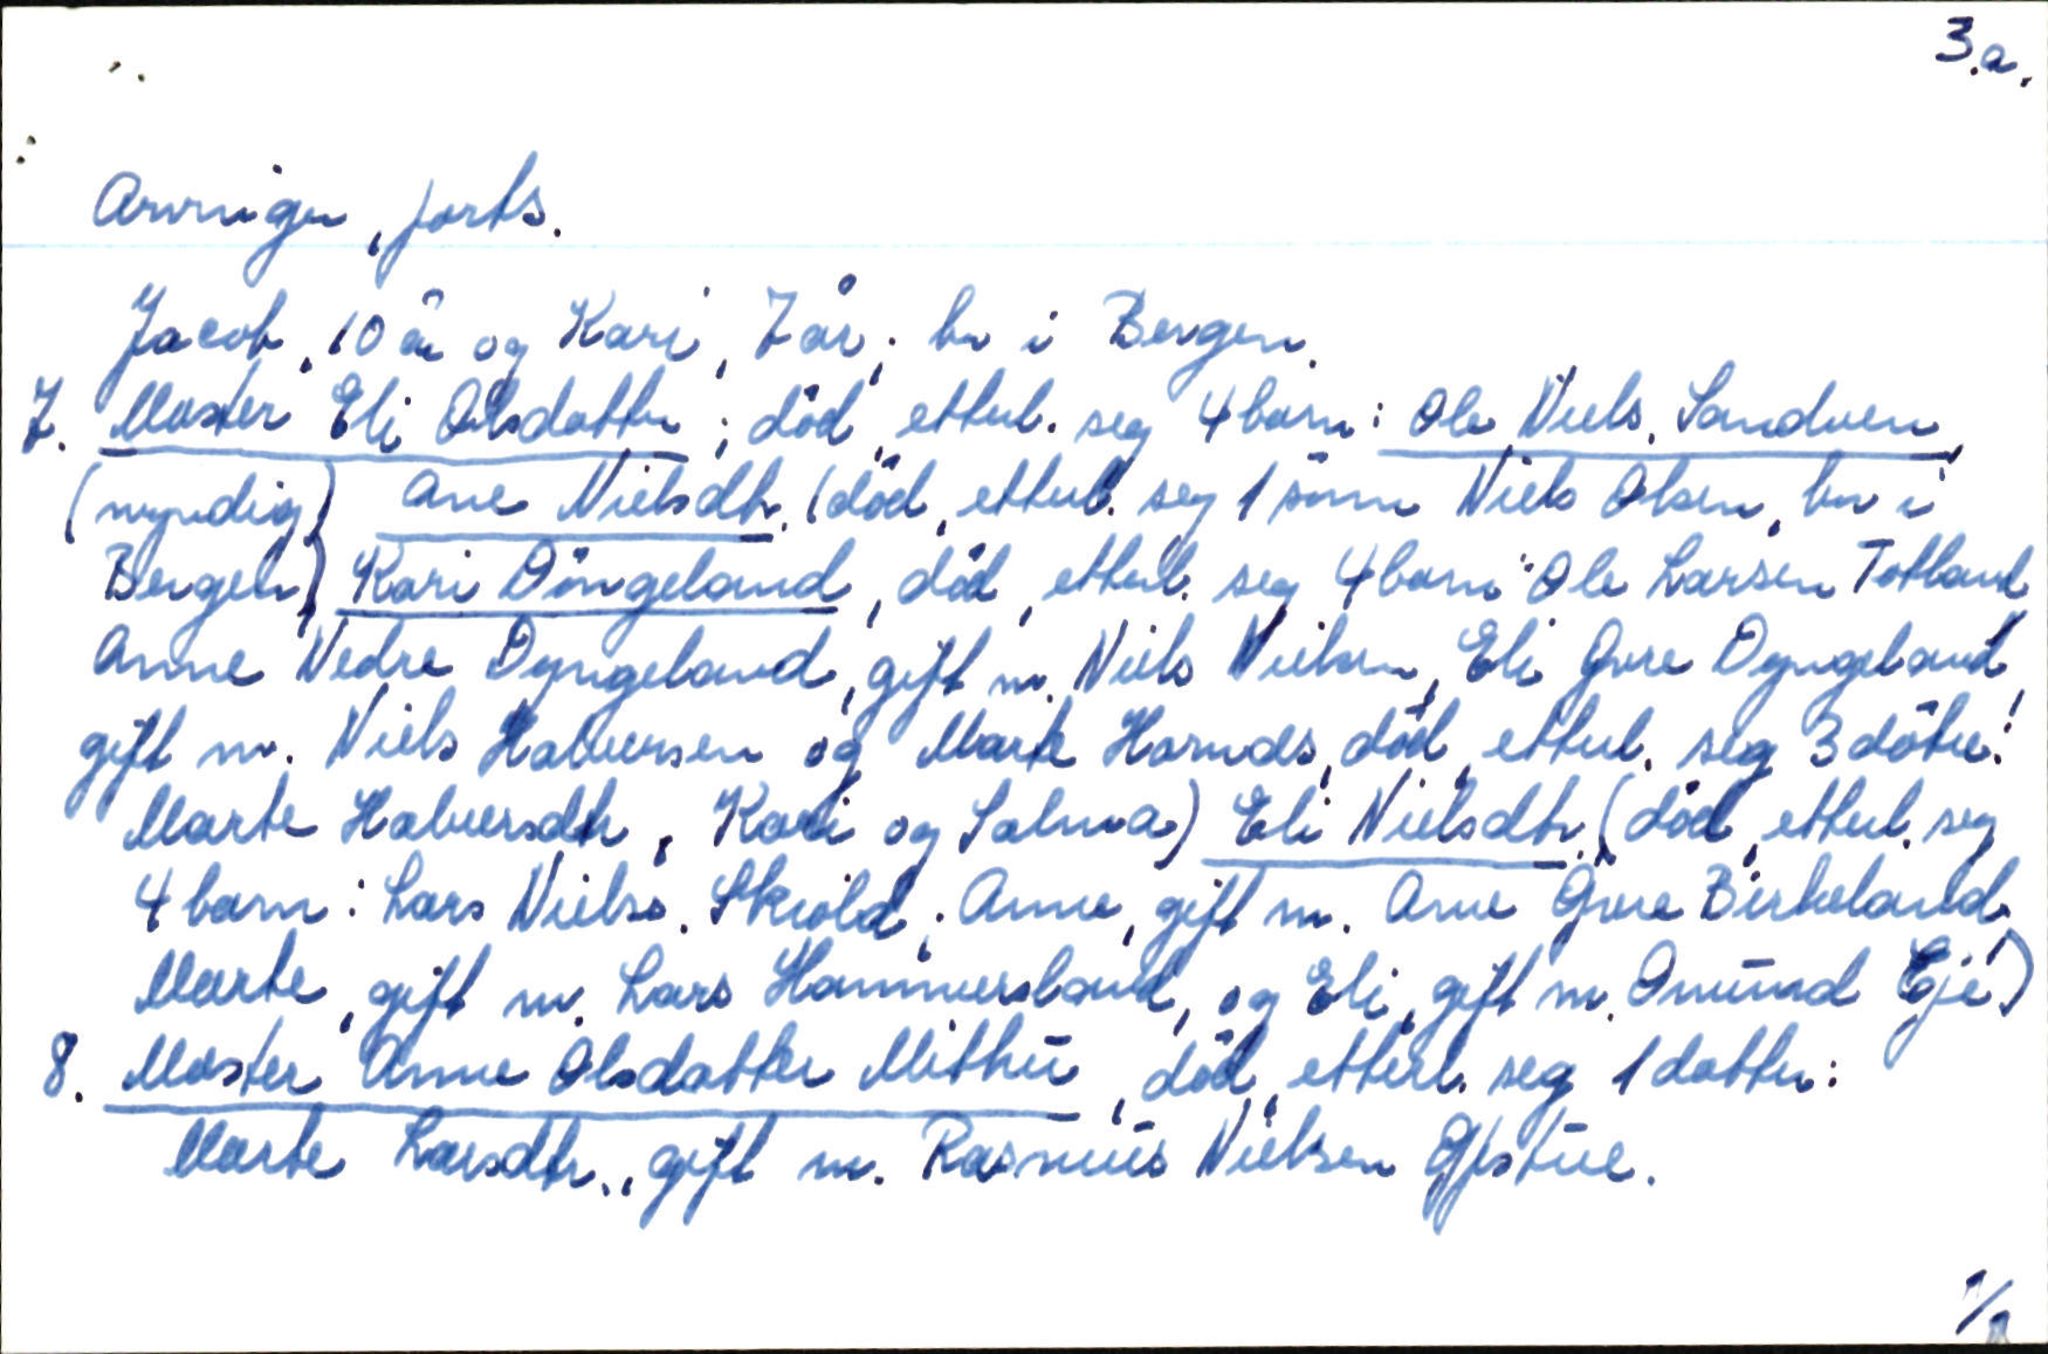 3.a.
Arvinger, forts.
Jacob, 10 år og Kari, 7 år, bor i Bergen.
7. Moster Eli Olsdatter; död, etterl. seg 4 barn: Ole Niels. Sandven,
(myndig) Ane Nielsdtr. (död, etterl. seg 1 sönn Niels Olsen, bor i
Bergen) Kari Döngeland, död, etterl. seg 4 barn: Ole Larsen Totland
Anne Nedre Dyngeland, gift m. Niels Nielsen, Eli Övre Dyngeland,
gift m. Niels Halversen og Marte Hornås, död, etterl. seg 3 dötre:
Marte Halversdtr, Kari og Salma) Eli Nielsdtr. (död, etterl. seg
4 barn: Lars Nielss. Skiold, Anne, gift m. Arne Övre Birkeland,
Marte, gift m. Lars Hammersland, og Eli, gift m. Omund Eje)
8. Moster Anne Olsdatter Mithu, död, etterl. seg 1 datter:
Marte Larsdtr., gift m. Rasmus Nielsen